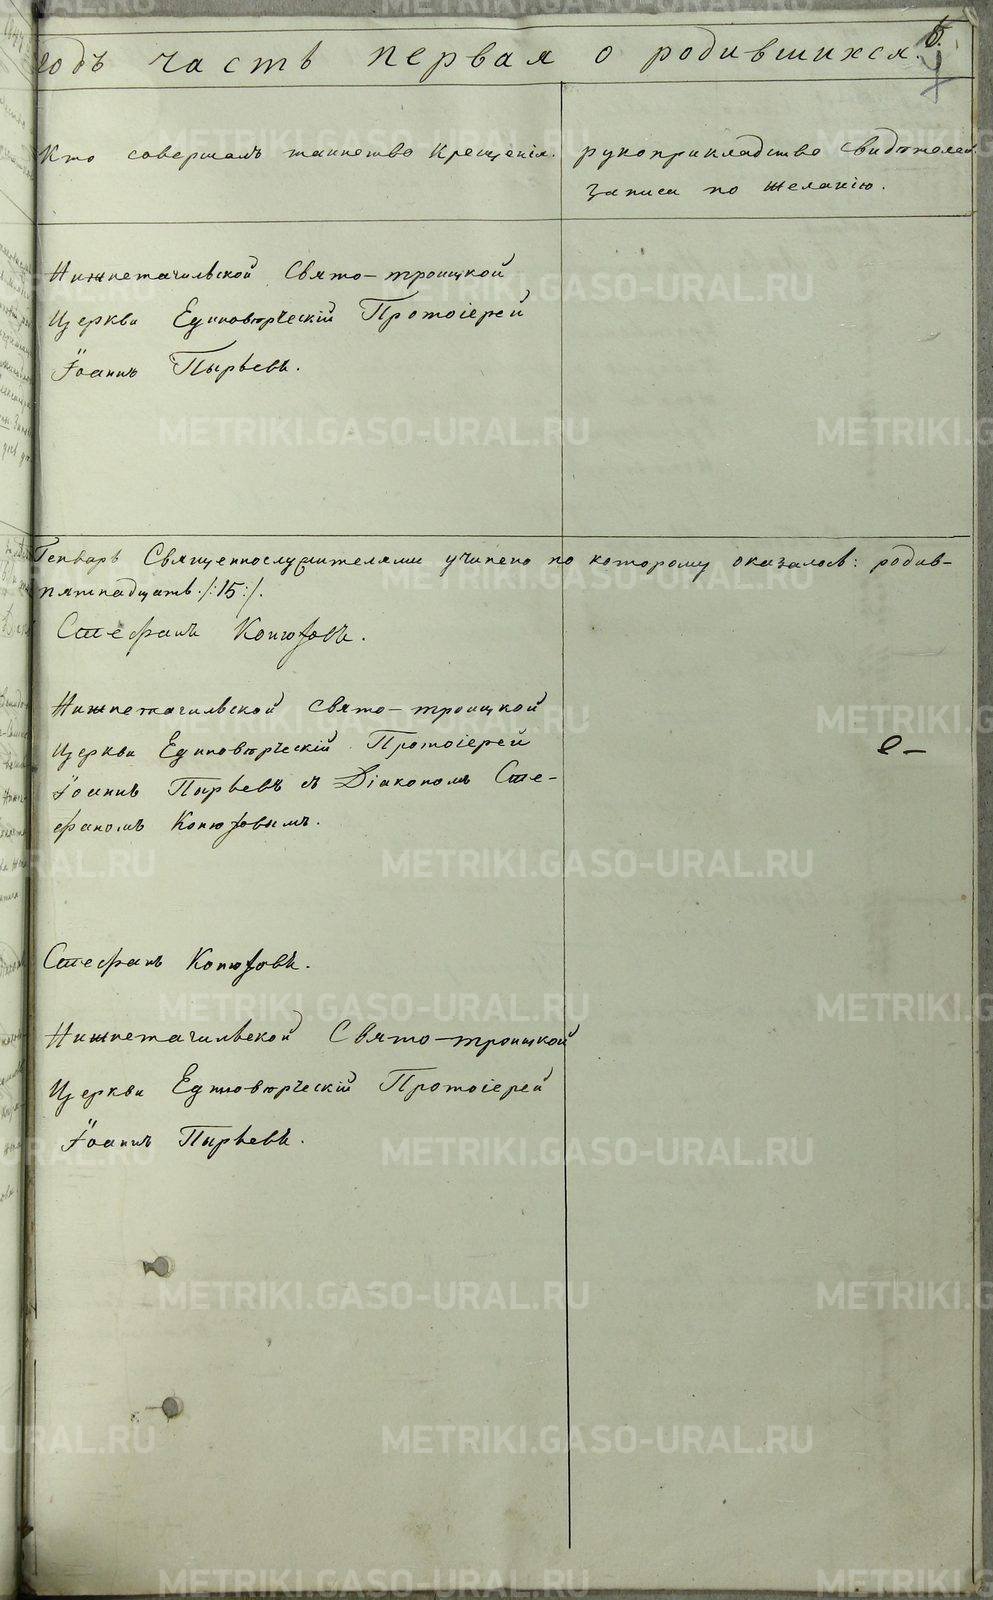 годъ часть первая о родившихся.
Кто совершалъ таинство Крещенія.
рукоприкладство свидѣтелей
записи по желанію.
Нижнетагильской Свято-троицкой
Церкви Единовѣрческій Протоіерей
Іоаннъ Пырьевъ.
Генварь Священнослужителями учинено по которому оказалось: родив-
пятнадцать ./:15:/.
Стефанъ Конюховъ.
Нижнетагильской Свято-троицкой
Церкви Единовѣрческій Протоіерей
Іоаннъ Пырьевъ съ Діакономъ Сте-
фаномъ Конюховымъ.
Стефанъ Конюховъ.
Нижнетагильской Свято-троицкой
Церкви Единовѣрческій Протоіерей
Іоаннъ Пырьевъ.
METRIKI.GASO-URAL.RU